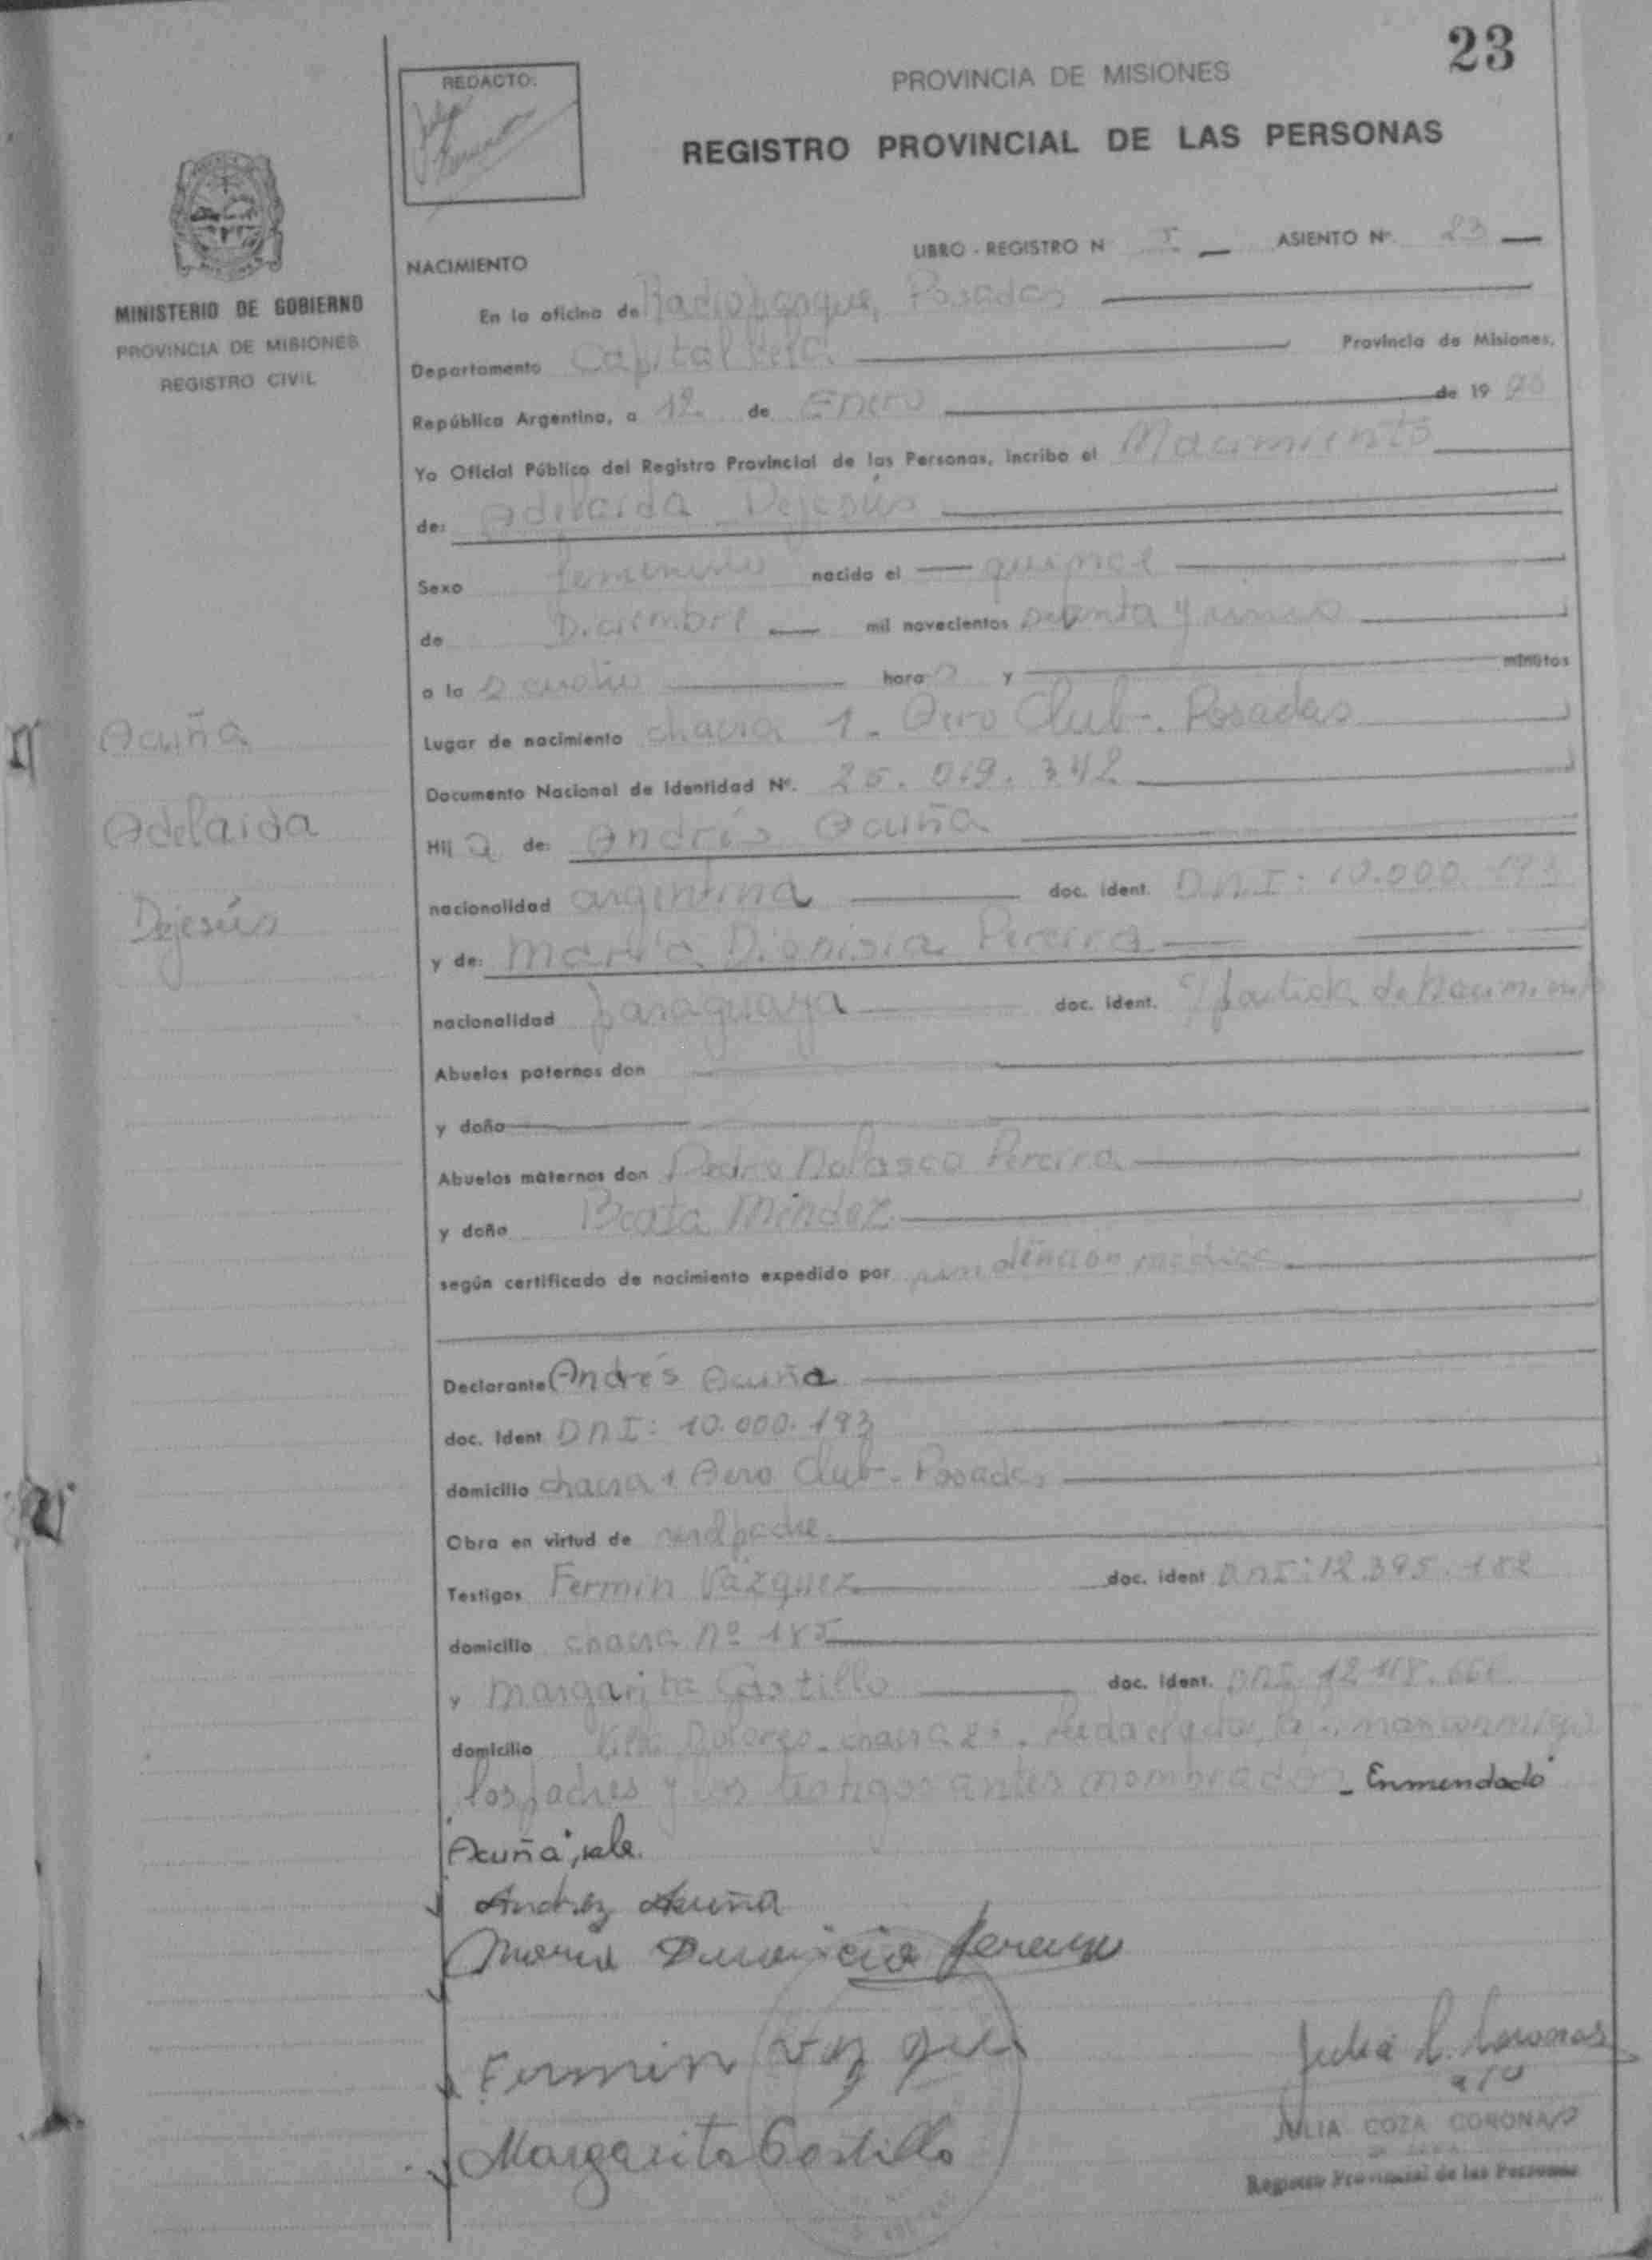 23
REDACTO:
PROVINCIA DE MISIONES
REGISTRO PROVINCIAL DE LAS PERSONAS
MINISTERIO DE GOBIERNO
PROVINCIA DE MISIONES
REGISTRO CIVIL
LIBRO - REGISTRO N I ASIENTO Nº. 23
NACIMIENTO
En la oficina de Radioparque, Posadas
Departamento Capital Provincia de Misiones,
República Argentina, a de Enero de 19
Yo Oficial Público del Registro Provincial de las Personas, incribo el Nacimiento
de: Adelaida Dejesús
Sexo femenino nacido el quince
de Diciembre mil novecientos setenta y
a la s cuatro hora s y minutos
Lugar de nacimiento chacra 1 - Aero Club - Posadas
Documento Nacional de Identidad Nº. 25. 019. 342
Acuña
Adelaida
Dejesús
Hij a de: Andrés Acuña
nacionalidad argentina doc. ident. D.N.I: 10.000.193
y de: María Dionisia Pereira
nacionalidad paraguaya doc. ident. partida de Nacimiento
Abuelos paternos don
y doña
Abuelos maternos don Pedro Nolasco Pereira
y doña Beata Méndez
según certificado de nacimiento expedido por sin atención médica
Declarante Andrés Acuña
doc. Ident DNI: 10.000.193
domicilio chacra 1 Aero Club - Posadas
Obra en virtud de ser el padre
Testigos Fermín Vázquez doc. ident DNI: 12.395.182
domicilio chacra Nº 185
y Margarita Castillo doc. Ident. DNI 12.118.666
domicilio Villa Dolores - chacra la firman conmigo
los padres y los testigos antes nombrados - Enmendado
"Acuña", vale.
Andrez Acuña
Maria
Fermin
Margarita Castillo
JULIA COZA CORONA
Registro Provincial de las Personas